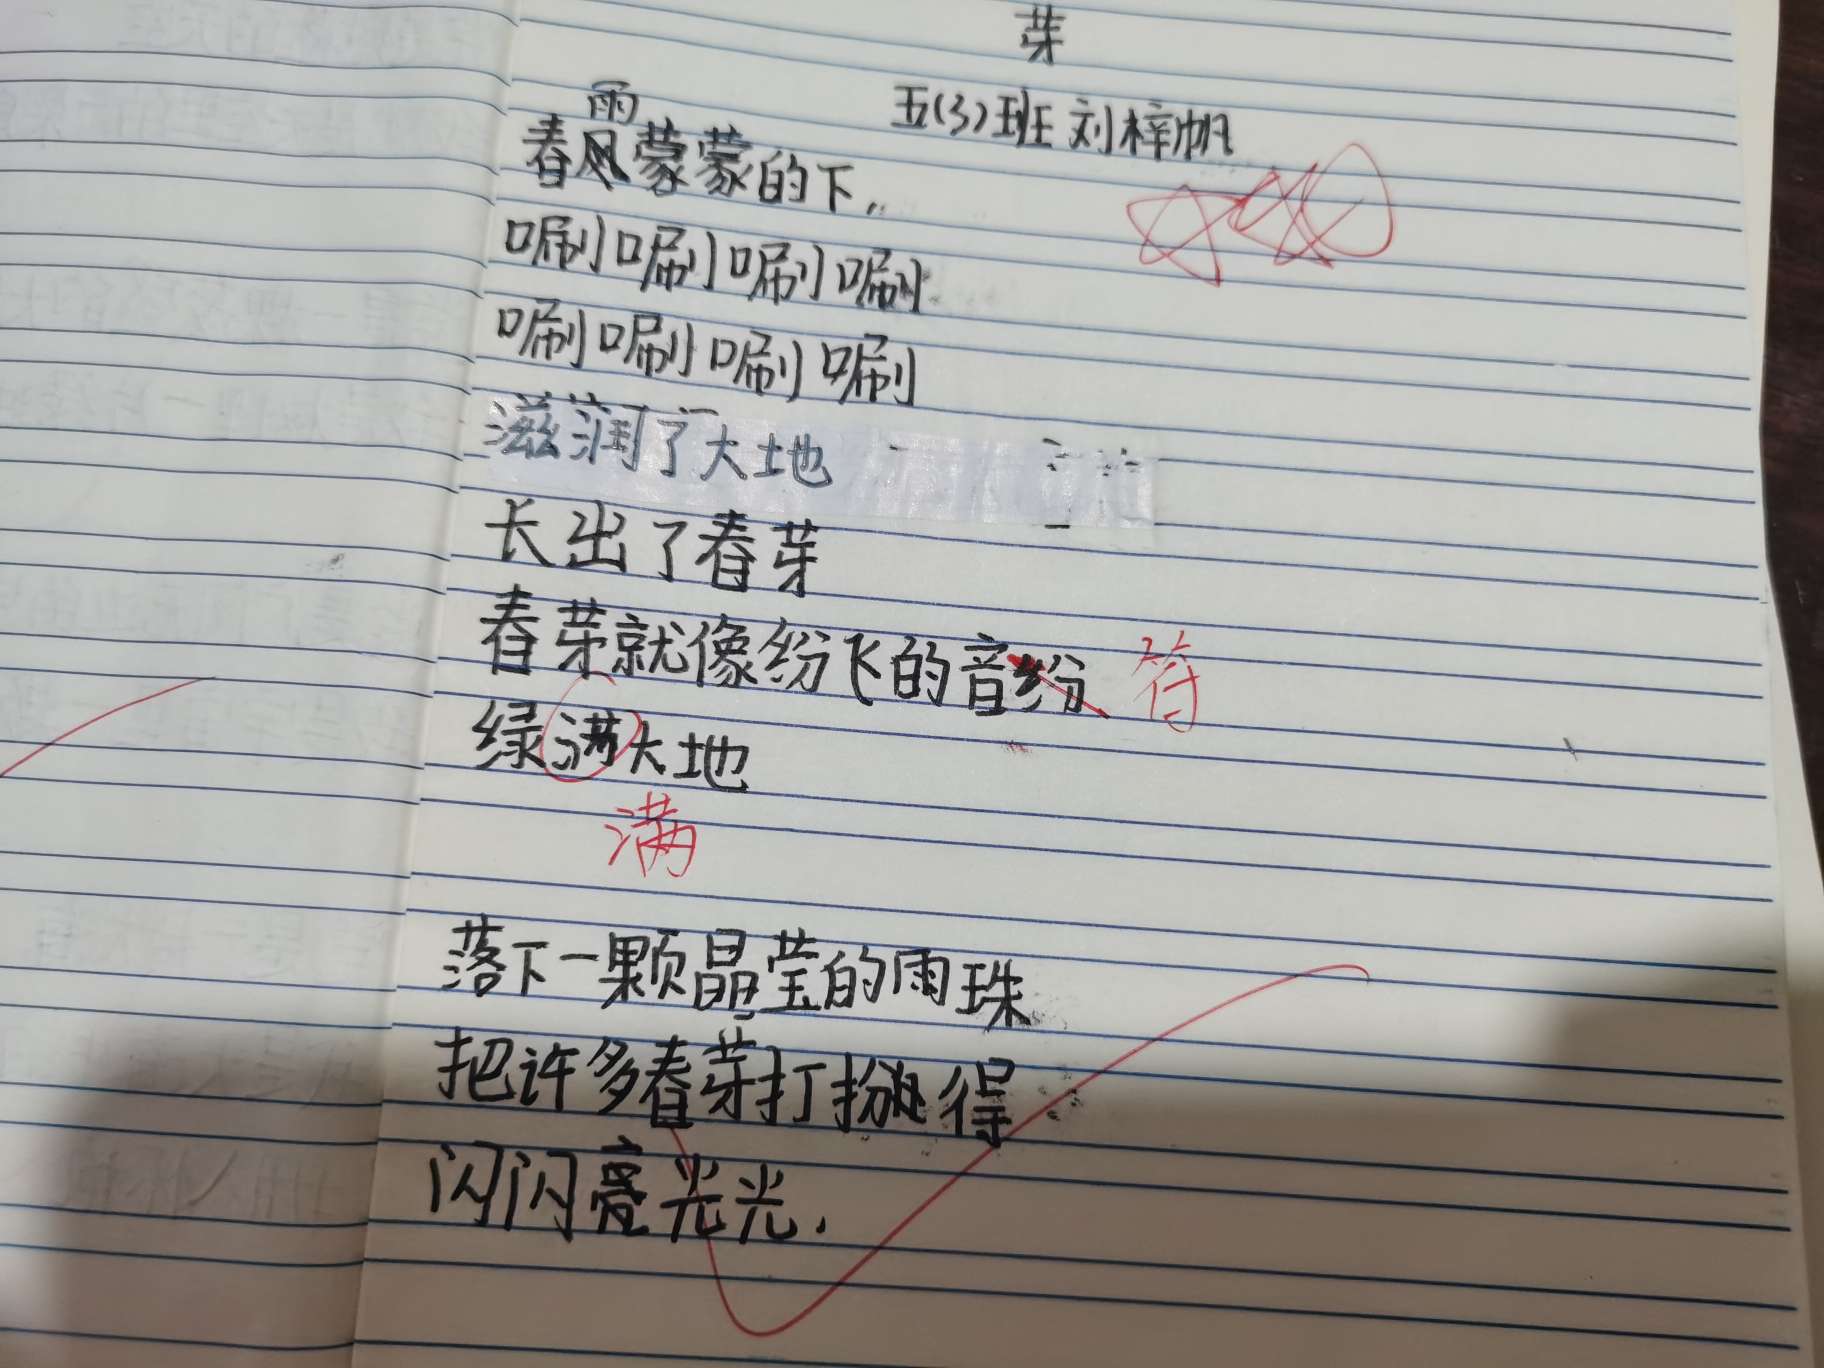 芽
五(3)班 刘梓帆
雨
春风蒙蒙的下,,
唰唰唰唰
唰唰唰唰
滋润了大地
长出了春芽
春芽就像纷飞的音纷 符
绿满大地
满
落下一颗晶莹的雨珠
把许多春芽打扮得
闪闪亮光光.